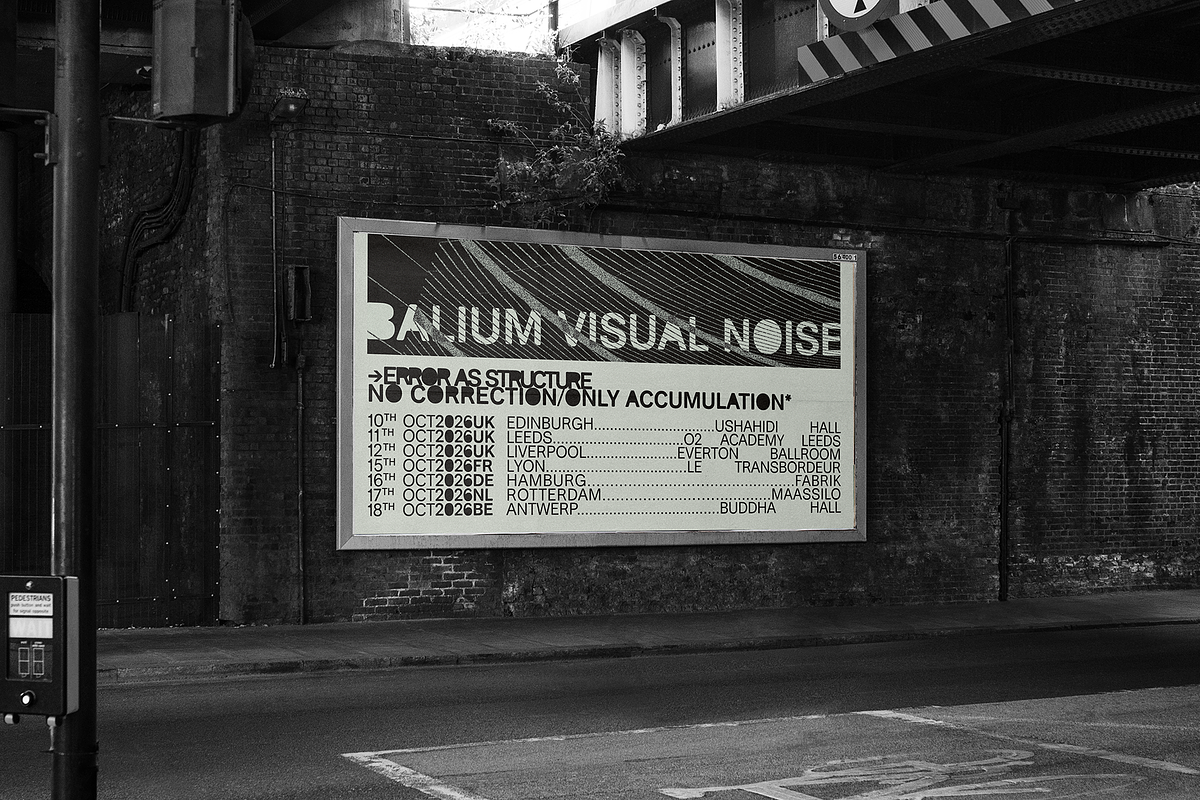 56400 1
BALIUM VISUAL NOISE
→ERROR AS STRUCTURE
NO CORRECTION/ONLY ACCUMULATION*
10TH OCT2026UK EDINBURGH........................USHAHIDI HALL
11TH OCT2026UK LEEDS..........................O2 ACADEMY LEEDS
12TH OCT2026UK LIVERPOOL..................EVERTON BALLROOM
15TH OCT2026FR LYON............................LE TRANSBORDEUR
16TH OCT2026DE HAMBURG..........................................FABRIK
17TH OCT2026NL ROTTERDAM..................................MAASSILO
18TH OCT2026BE ANTWERP............................BUDDHA HALL
PEDESTRIANS
push button and wait
for signal opposite
WAIT